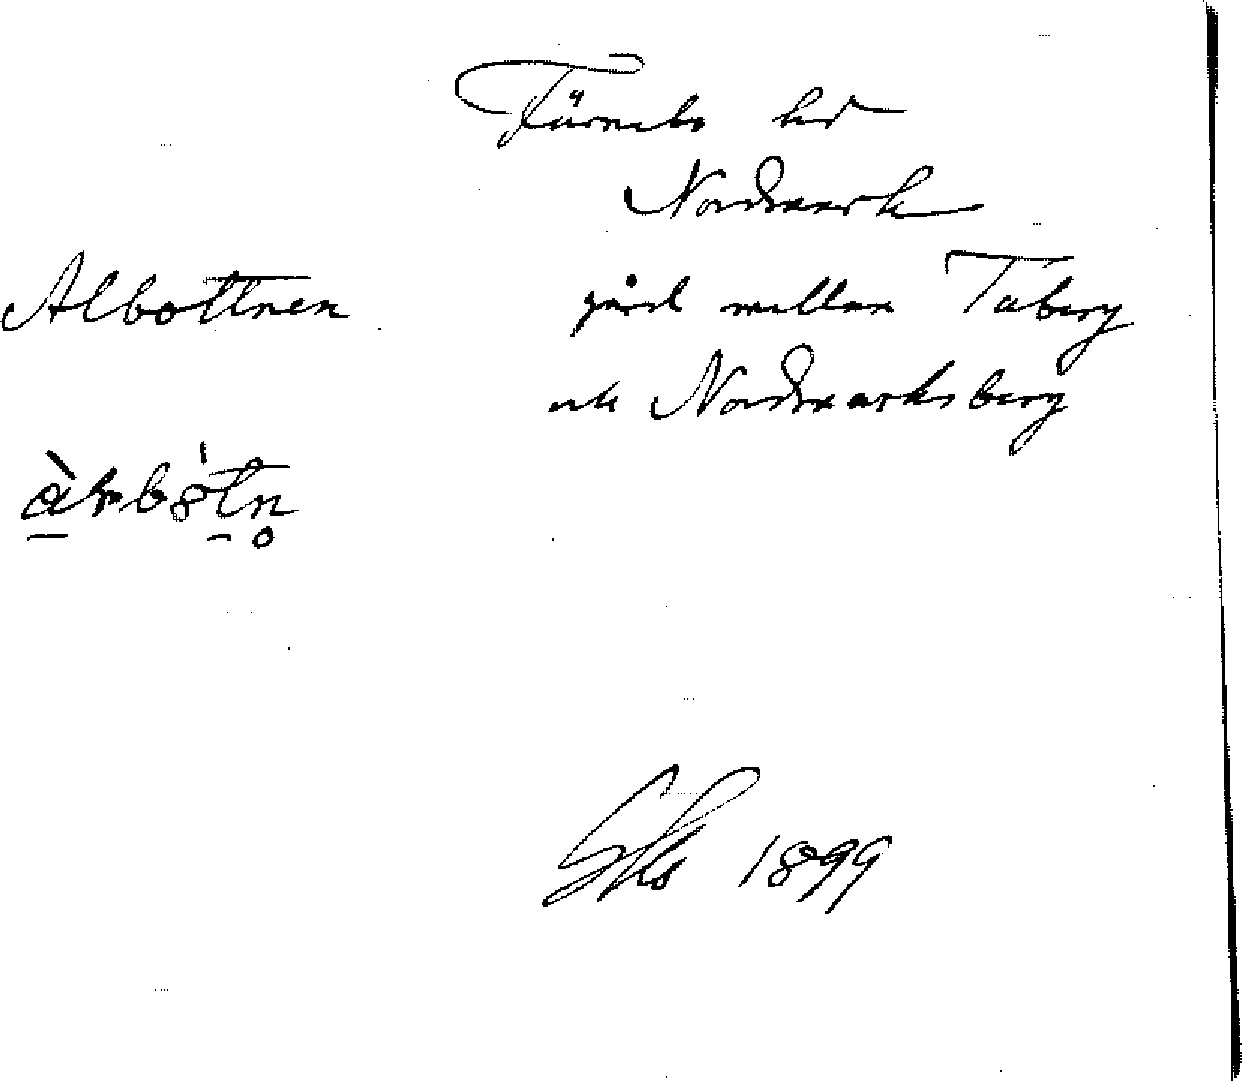 Färnebo hd
Nordmark
Albottnen gård mellan Taberg
och Nordmarksberg
1899